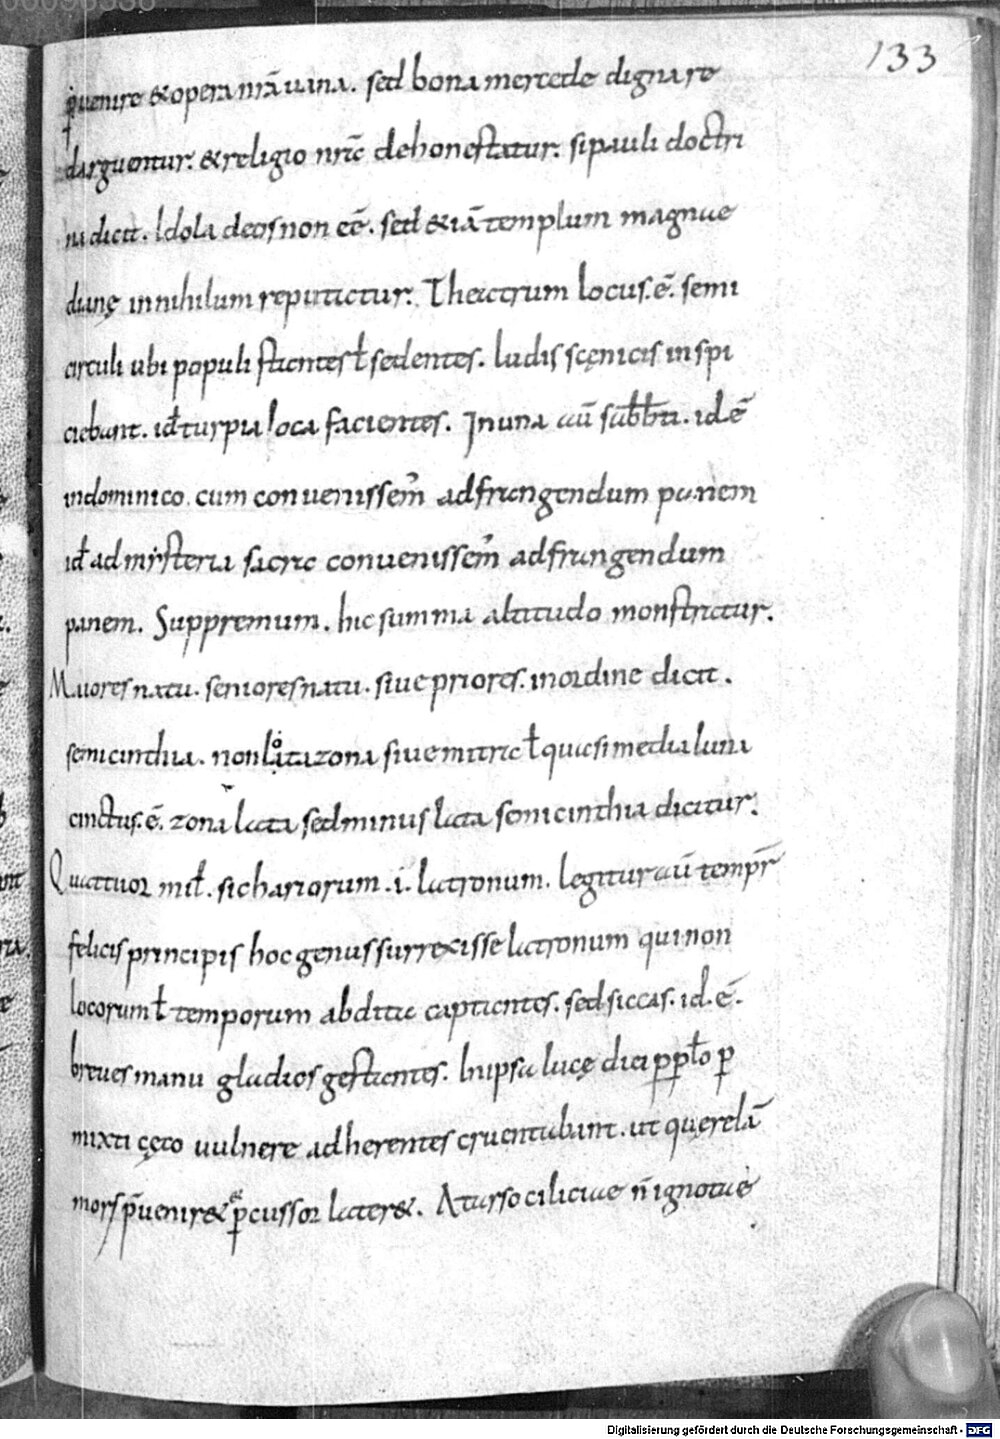 00096336
133
p̱uenire & opera nr̄a uana. sed bona mercede dignare
darguentur. & religio nr̄ae dehonestatur. si pauli doctri
na dicit. Idola deos non eē. sed & iā templum magnae
dianę in nihilum reputaetur. Theatrum locus. ē. semi
circuli ubi populi stantes ł sedentes. ludis scęnicis inspi
ciebant. id ÷ turpia loca facientes. In una aū sabb̄ti. id ē
in dominico. cum conuenissem̄ ad frangendum panem
id ad mysteria sacrae conuenissem̄ ad frangendum
panem. Suppremum. hic summa altitudo monstratur.
Maiores natu. seniores natu. siue priores. in ordine dicit.
semicinthia. non lata zona siue mitrae ł quasi media luna
cinctus. ē. zona lata sed minus lata semicinthia dicitur.
Quattuor mił. sichariorum .i. latronum. legitur aū tempr̄
felicis principis hoc genus surrexisse latronum qui non
locorum ł temporum abditae captantes. sed siccas. id. ē.
breues manu gladios gestantes. In ipsa lucę diei p̱ pło p̱
mixti cęto uulnere adherentes cruentabant. ut querelā
mors p̄uenir& & p̱cussor later&. A tarso ciliciae n̄ ignotae
Digitalisierung gefördert durch die Deutsche Forschungsgemeinschaft - DFG